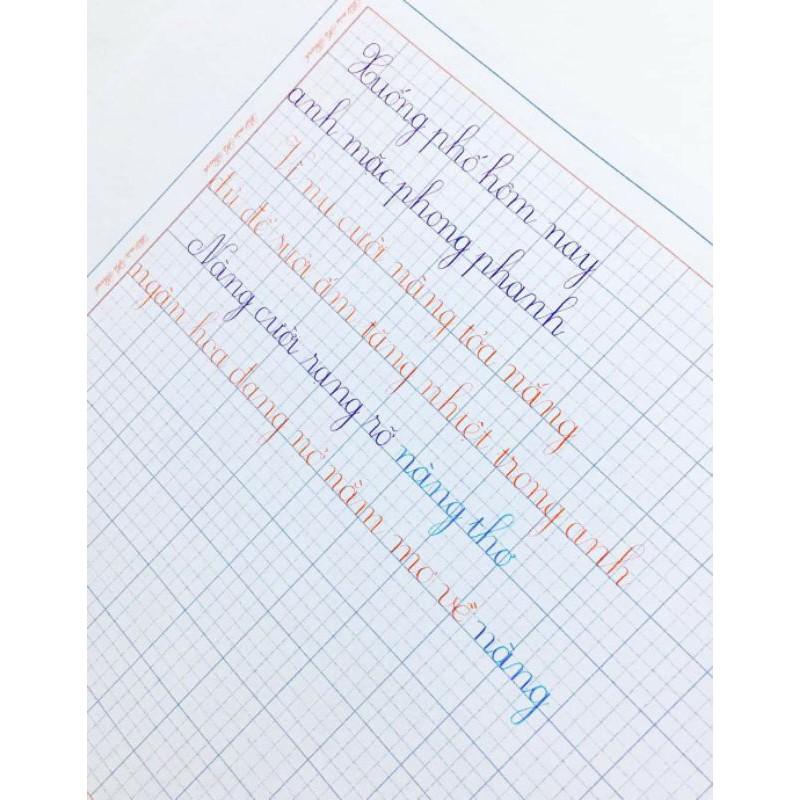 Xuống phố hôm nay
anh mặc phong phanh
Vì nụ cười nàng tỏa nắng
đủ để sưởi ấm tăng nhiệt trong anh
Nàng cười rạng rỡ nàng thơ
ngàn hoa đang nở nằm mơ về nàng